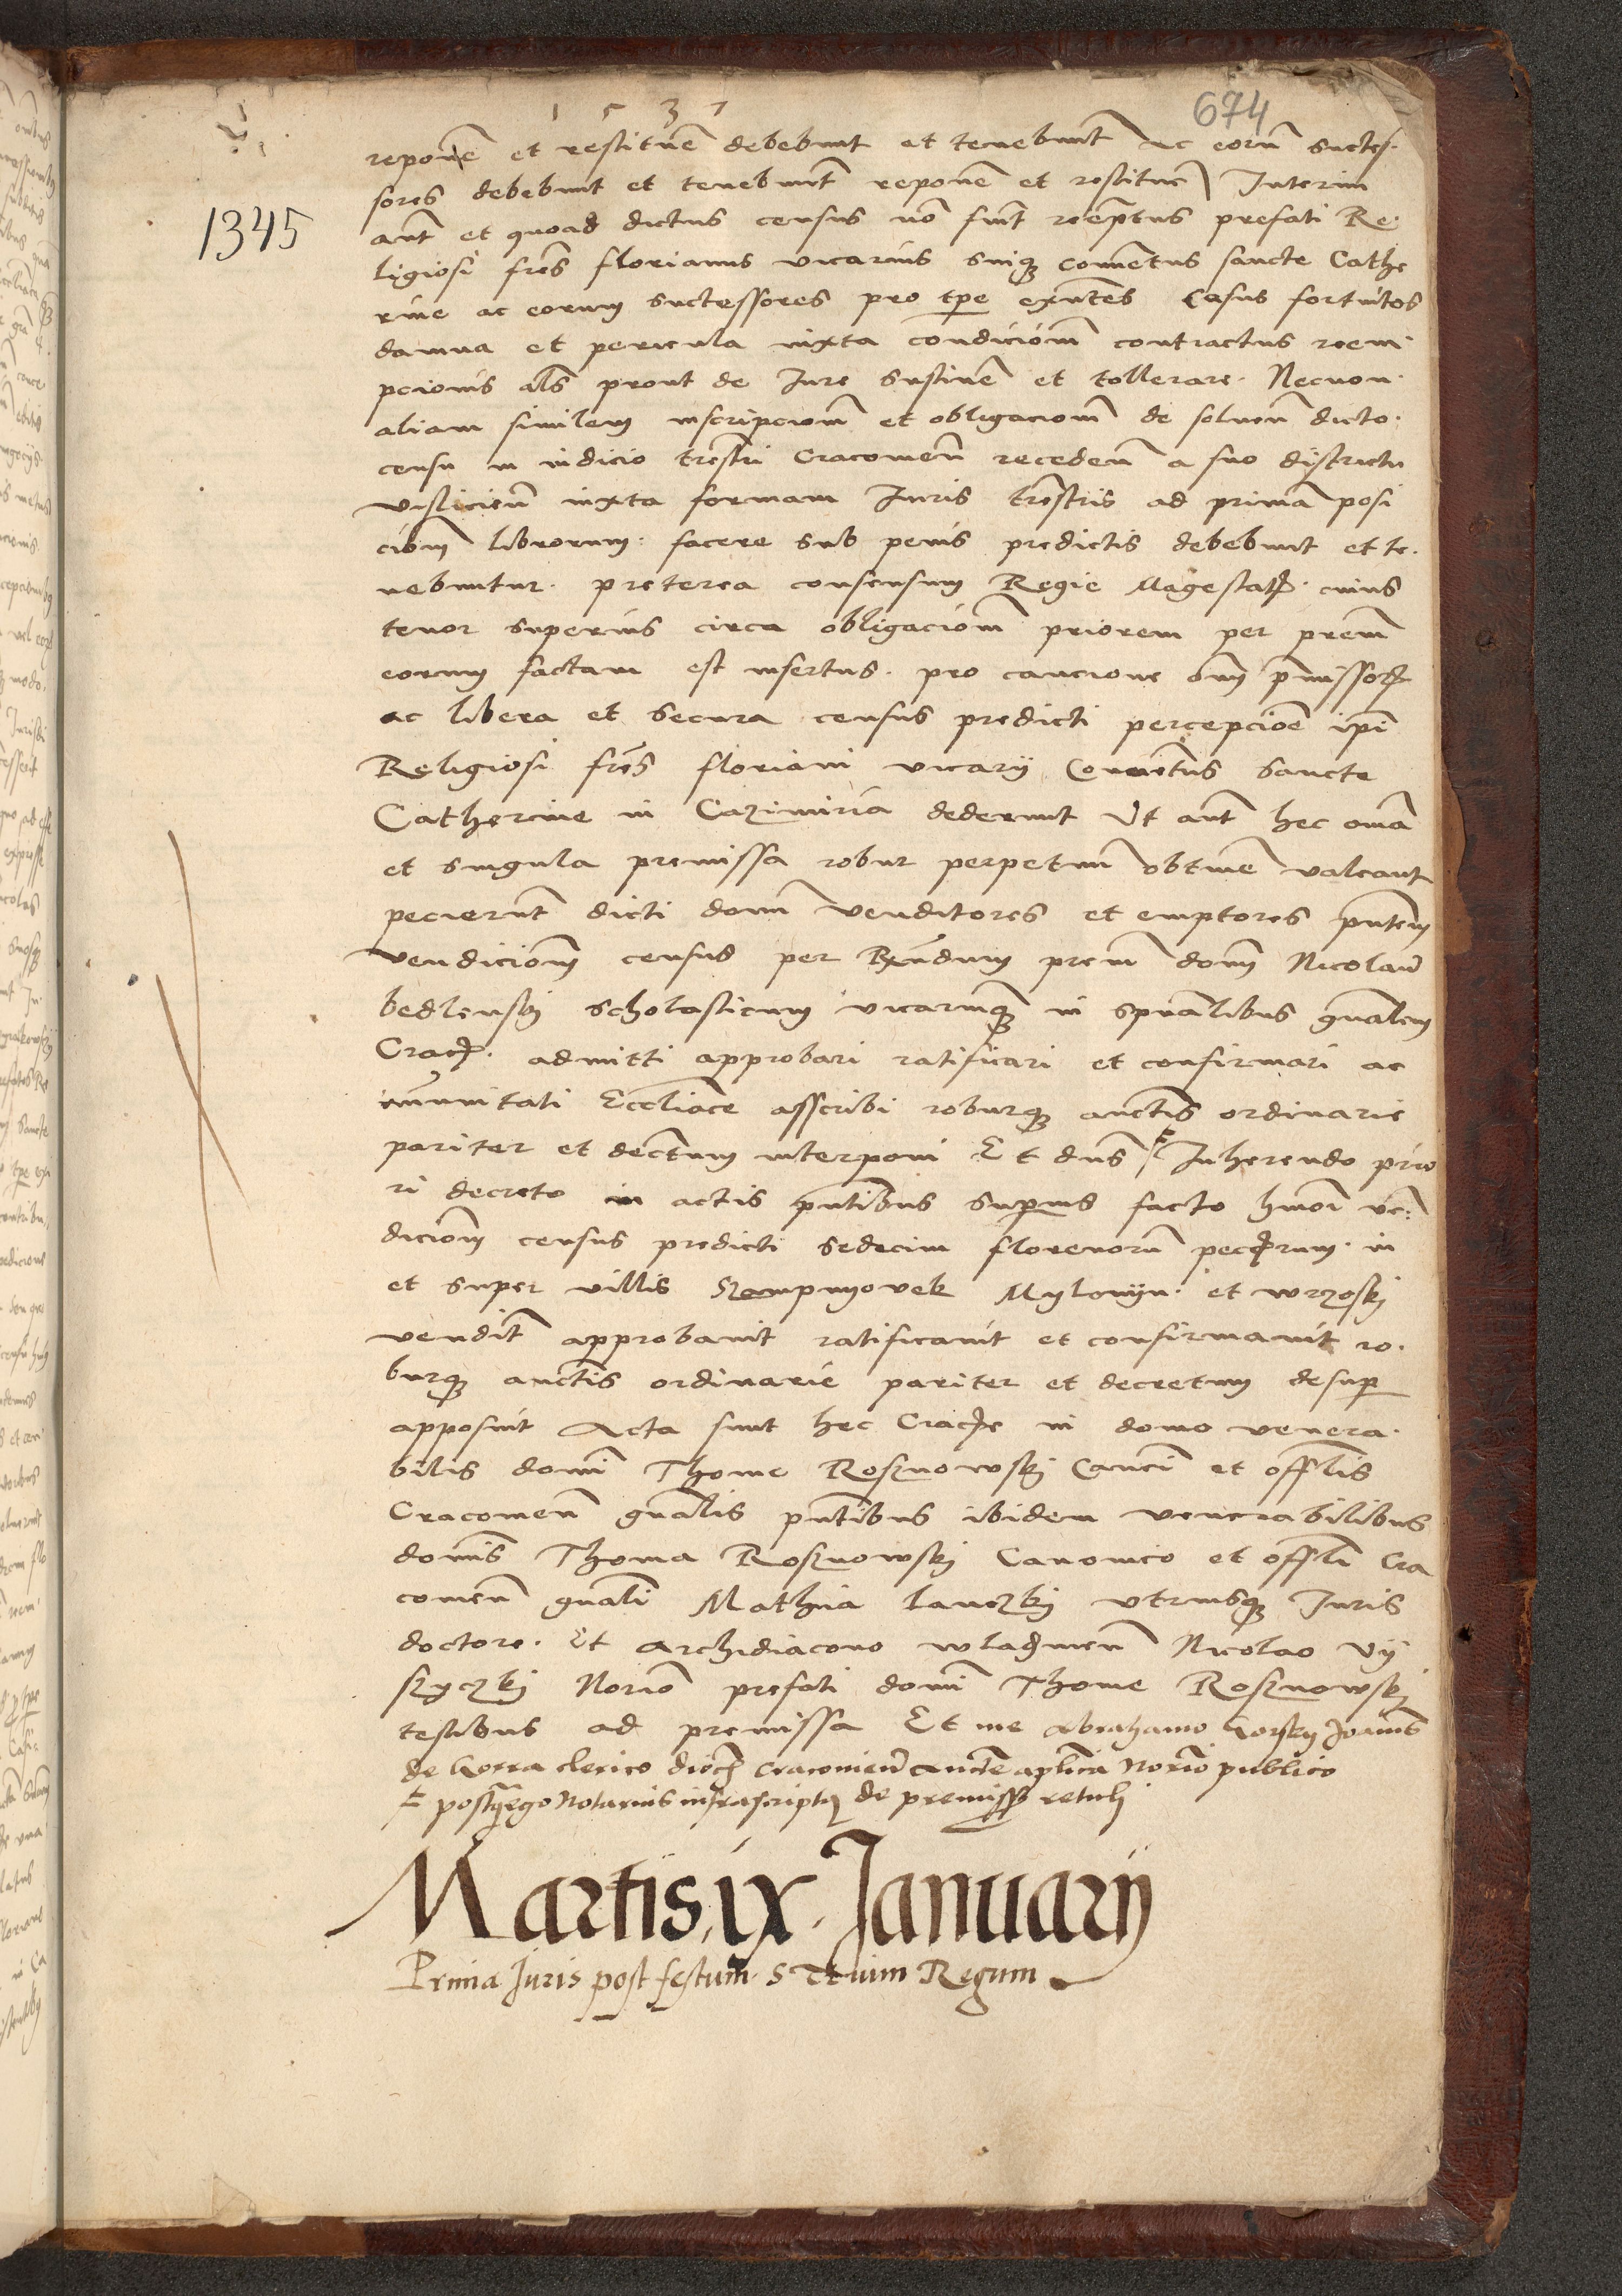 1537
674
1345
reponẽ et restituẽ debebunt et tenebunt̃ Ac eorũ succes.
sores debebunt et tenebunt̃ reponẽ et restituẽ Interim
aut̃ et quoad dictus census nõ fuit̃ reemptus prefati Re.
ligiosi fres̃ florianus vicarius suiq; conuentus sancte Cathe
rine ac eorum successores pro tpe exñtes Casus fortuitos
damna et pericula iuxta condicionẽ contractus reem.
pcionis als̃ prout de Iure sustinẽ et tollerare. Necnon.
aliam similem inscripcionẽ et obligacionẽ de soluen̄ dicto.
censu in iudicio trestri Cracouien̄ receden̄ a suo districtu
vislicien̄ iuxta formam Iuris trestris ad primã posi
cionẽ librorum: facere sub penis predictis debebunt et te.
nebuntur. preterea consensum Regie Magestatis. cuius
tenor superius circa obligacionẽ priorem per prem̃
eorum factam est insertus. pro caucione om̃ pmissorꝫ
ac libera et secura census predicti percepcioẽ ipĩ
Religiosi fres̃ floriani vicarij Conuentus sancte
Catherine in Cazimiria dederunt Vt aut̃ hec omã
et singula premissa robur perpetuũ obtinẽ valeant
pecierunt̃ dicti domĩ venditores et emptores pñtem
vendicionẽ census per Rxñdum prem̃ domĩ Nicolaũ
bedlensky scholasticum vicariumq; in spũalibus gñalem
Cracꝫ. admitti approbari ratificari et confirmari ac
imũnitati Ecclĩace asscribi roburq; auctis̃ ordinarie
pariter et decretum interponi Et dñs Inherendo prio
ri decreto in actis pñtibus superius facto hmoĩ ven:
dicionẽ census predicti sedecim florenorũ pecꝫrum in
et super villis Szampnyovek Mylonyn. et wrzosky
vendit̃ approbauit ratificauit et confirmauit ro.
burq; auctis̃ ordinarie pariter et decretum desup
apposuit Acta sunt hec Cracꝫe in domo venera.
bilis domĩ Thome Rosznowsky Canoĩ et offlis̃
Cracouien̄ gñalis pñtibus ibidem venerabilibus
domis̃ Thoma Rosznowsky Canonico et offlĩ Cra
couien̄ gñali Mathia lanczky vtriusq; Iuris
doctore. Et Archidiacono wladimen̄ Nicolao vy
szyczky Norĩo prefati domĩ Thome Rosznowsky
testibus ad premissa Et me Abrahamo Gorsky Joannis̃
de Gorra clerico dioc̃ Cracouien̄ Auctẽ aplĩca Norĩo publico
E postq̃ ego Notarius infrascriptus de premissis retuli
Martis, ix. Januarij
Prima Juris post festum. S Trium Regum